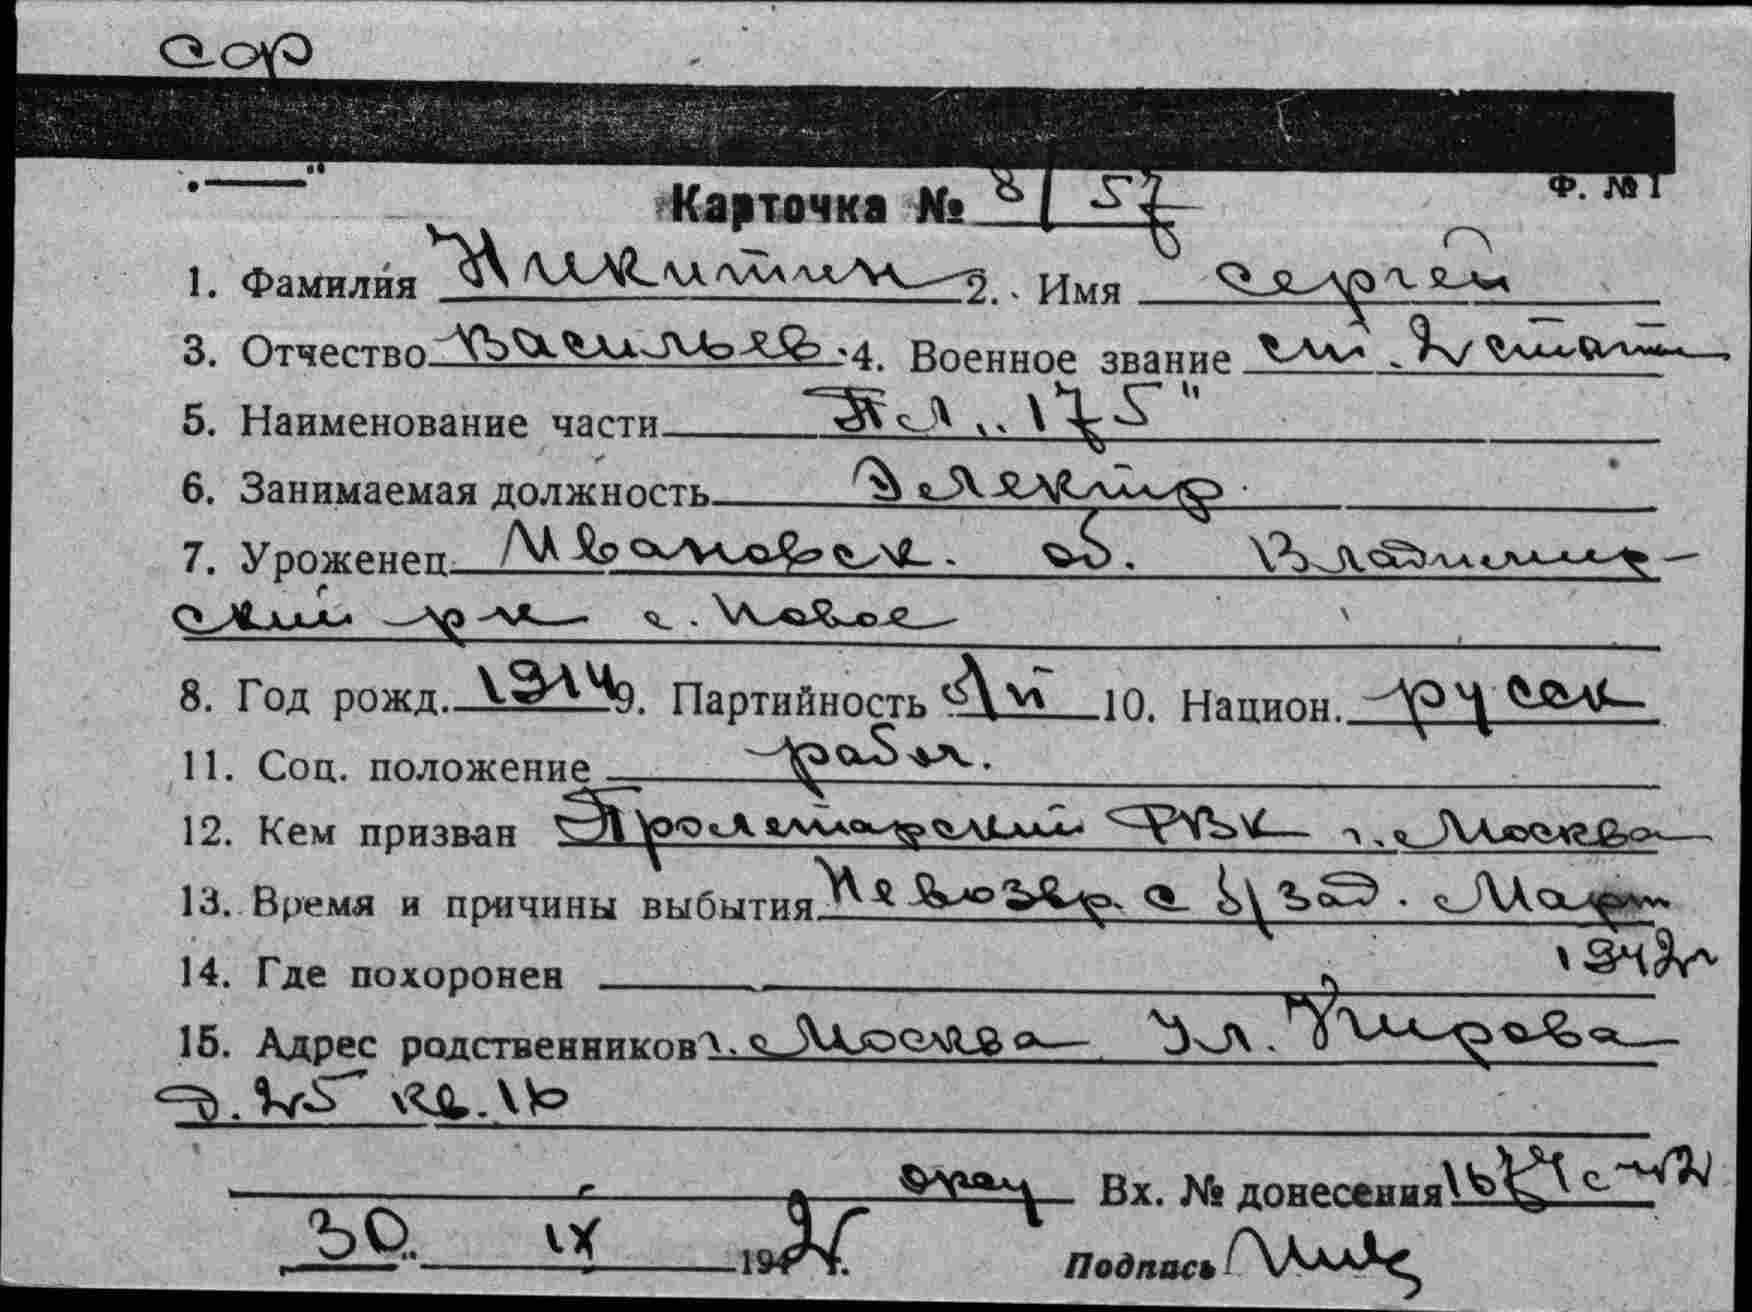 Ф. № 1
Карточка № 8/57
1. Фамилия Никитин 2. Имя Сергей
3. Отчество Васильев 4. Военное звание ст. 2 лейтент
5. Наименование части п/л „175"
6. Занимаемая должность Электр
7. Уроженец Ивановск. об. Владимир
ский р-н с. Новое
8. Год рожд. 1914 9. Партийность б/п 10. Национ. русск
11. Соц. положение рабоч.
12. Кем призван Пролетарский РВК г. Москва
13. Время и причины выбытия Не возвр. с БЗад. Март
1942
14. Где похоронен
15. Адрес родственников г. Москва ул. Кирова
д. 25 кв. 16
Вх. № донесения
30. IX 1942 г. Подпись